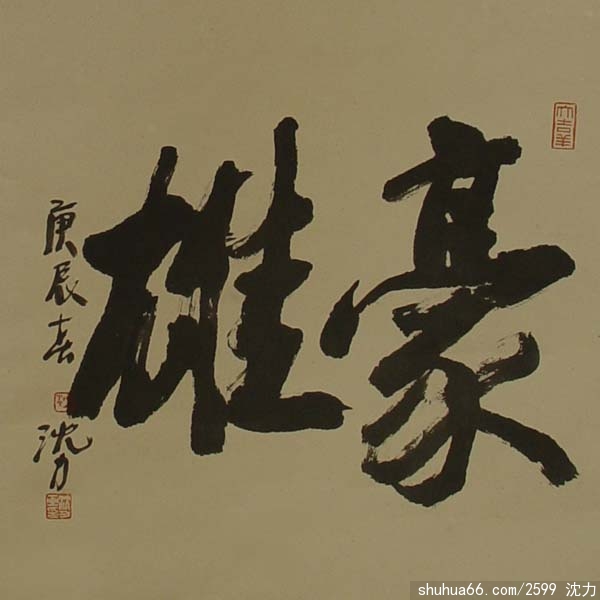 豪雄
大吉羊
庚辰春
沈力
shuhua66.com/2599 沈力